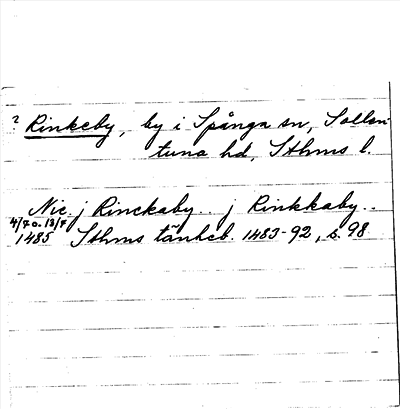 ? Rinkeby, by i Spånga sn, Sollen
tuna hd, Sthms l.
Nic. j Rinckaby.. j Rinkkaby..
4/7 o. 13/7
1485 Sthms tänkeb. 1483-92, s. 98